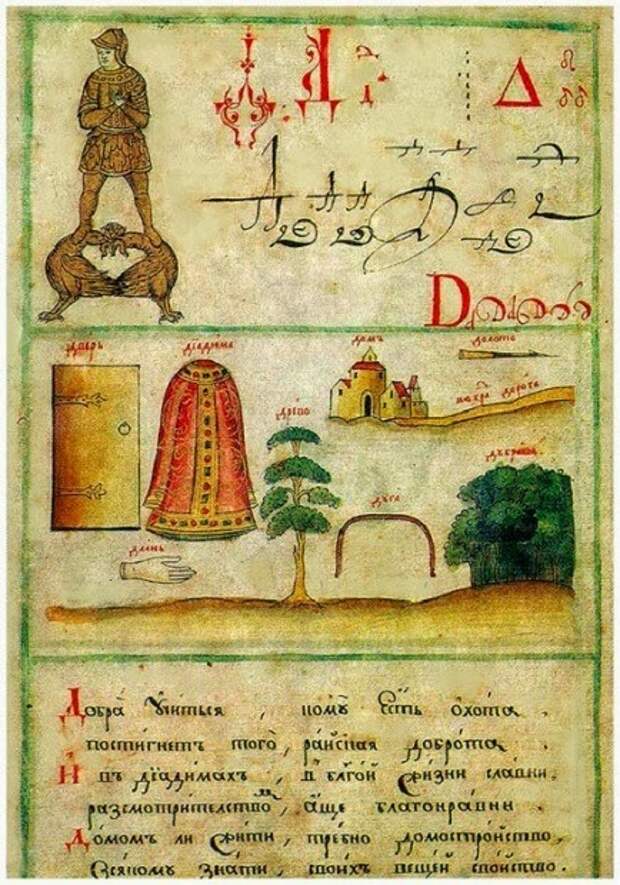 Д Д Δ
D
дверь діадима домъ долото
древо дорога
дꙋга дꙋбрава
длань
Добра ꙋчиться, комꙋ есть охота.
постигнетъ того, райская доброта.
И въ діадимахъ, в благой жизни славни.
разсмотрителство, аще благонравни.
Домомъ ли жити, требно домостройство,
Всякому знати, своихъ вещей свойство.